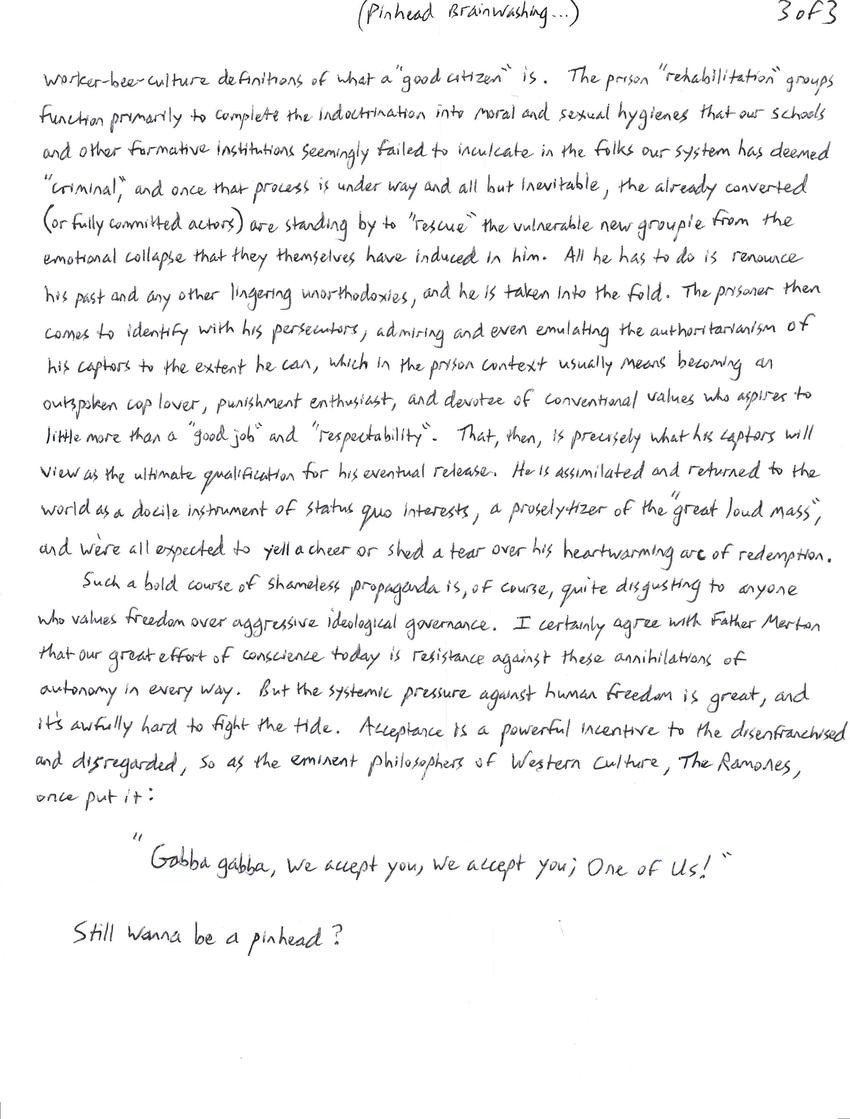 (Pinhead Brainwashing...)
3 of 3
worker-bee-culture definitions of what a "good citizen" is. The prison "rehabilitation" groups
function primarily to complete the indoctrination into moral and sexual hygienes that our schools
and other formative institutions seemingly failed to inculcate in the folks our system has deemed
"criminal," and once that process is under way and all but inevitable, the already converted
(or fully committed actors) are standing by to "rescue" the vulnerable new groupie from the
emotional collapse that they themselves have induced in him. All he has to do is renounce
his past and any other lingering unorthodoxies, and he is taken into the fold. The prisoner then
comes to identify with his persecutors, admiring and even emulating the authoritarianism of
his captors to the extent he can, which in the prison context usually means becoming an
outspoken cop lover, punishment enthusiast, and devotee of conventional values who aspires to
little more than a "good job" and "respectability". That, then, is precisely what his captors will
view as the ultimate qualification for his eventual release. He is assimilated and returned to the
world as a docile instrument of status quo interests, a proselytizer of the "great loud mass",
and we're all expected to yell a cheer or shed a tear over his heartwarming arc of redemption.
Such a bold course of shameless propaganda is, of course, quite disgusting to anyone
who values freedom over aggressive ideological governance. I certainly agree with Father Merton
that our great effort of conscience today is resistance against these annihilations of
autonomy in every way. But the systemic pressure against human freedom is great, and
it's awfully hard to fight the tide. Acceptance is a powerful incentive to the disenfranchised
and disregarded, so as the eminent philosophers of Western Culture, The Ramones,
once put it:
"Gabba gabba, we accept you, we accept you; One of Us!"
Still wanna be a pinhead?